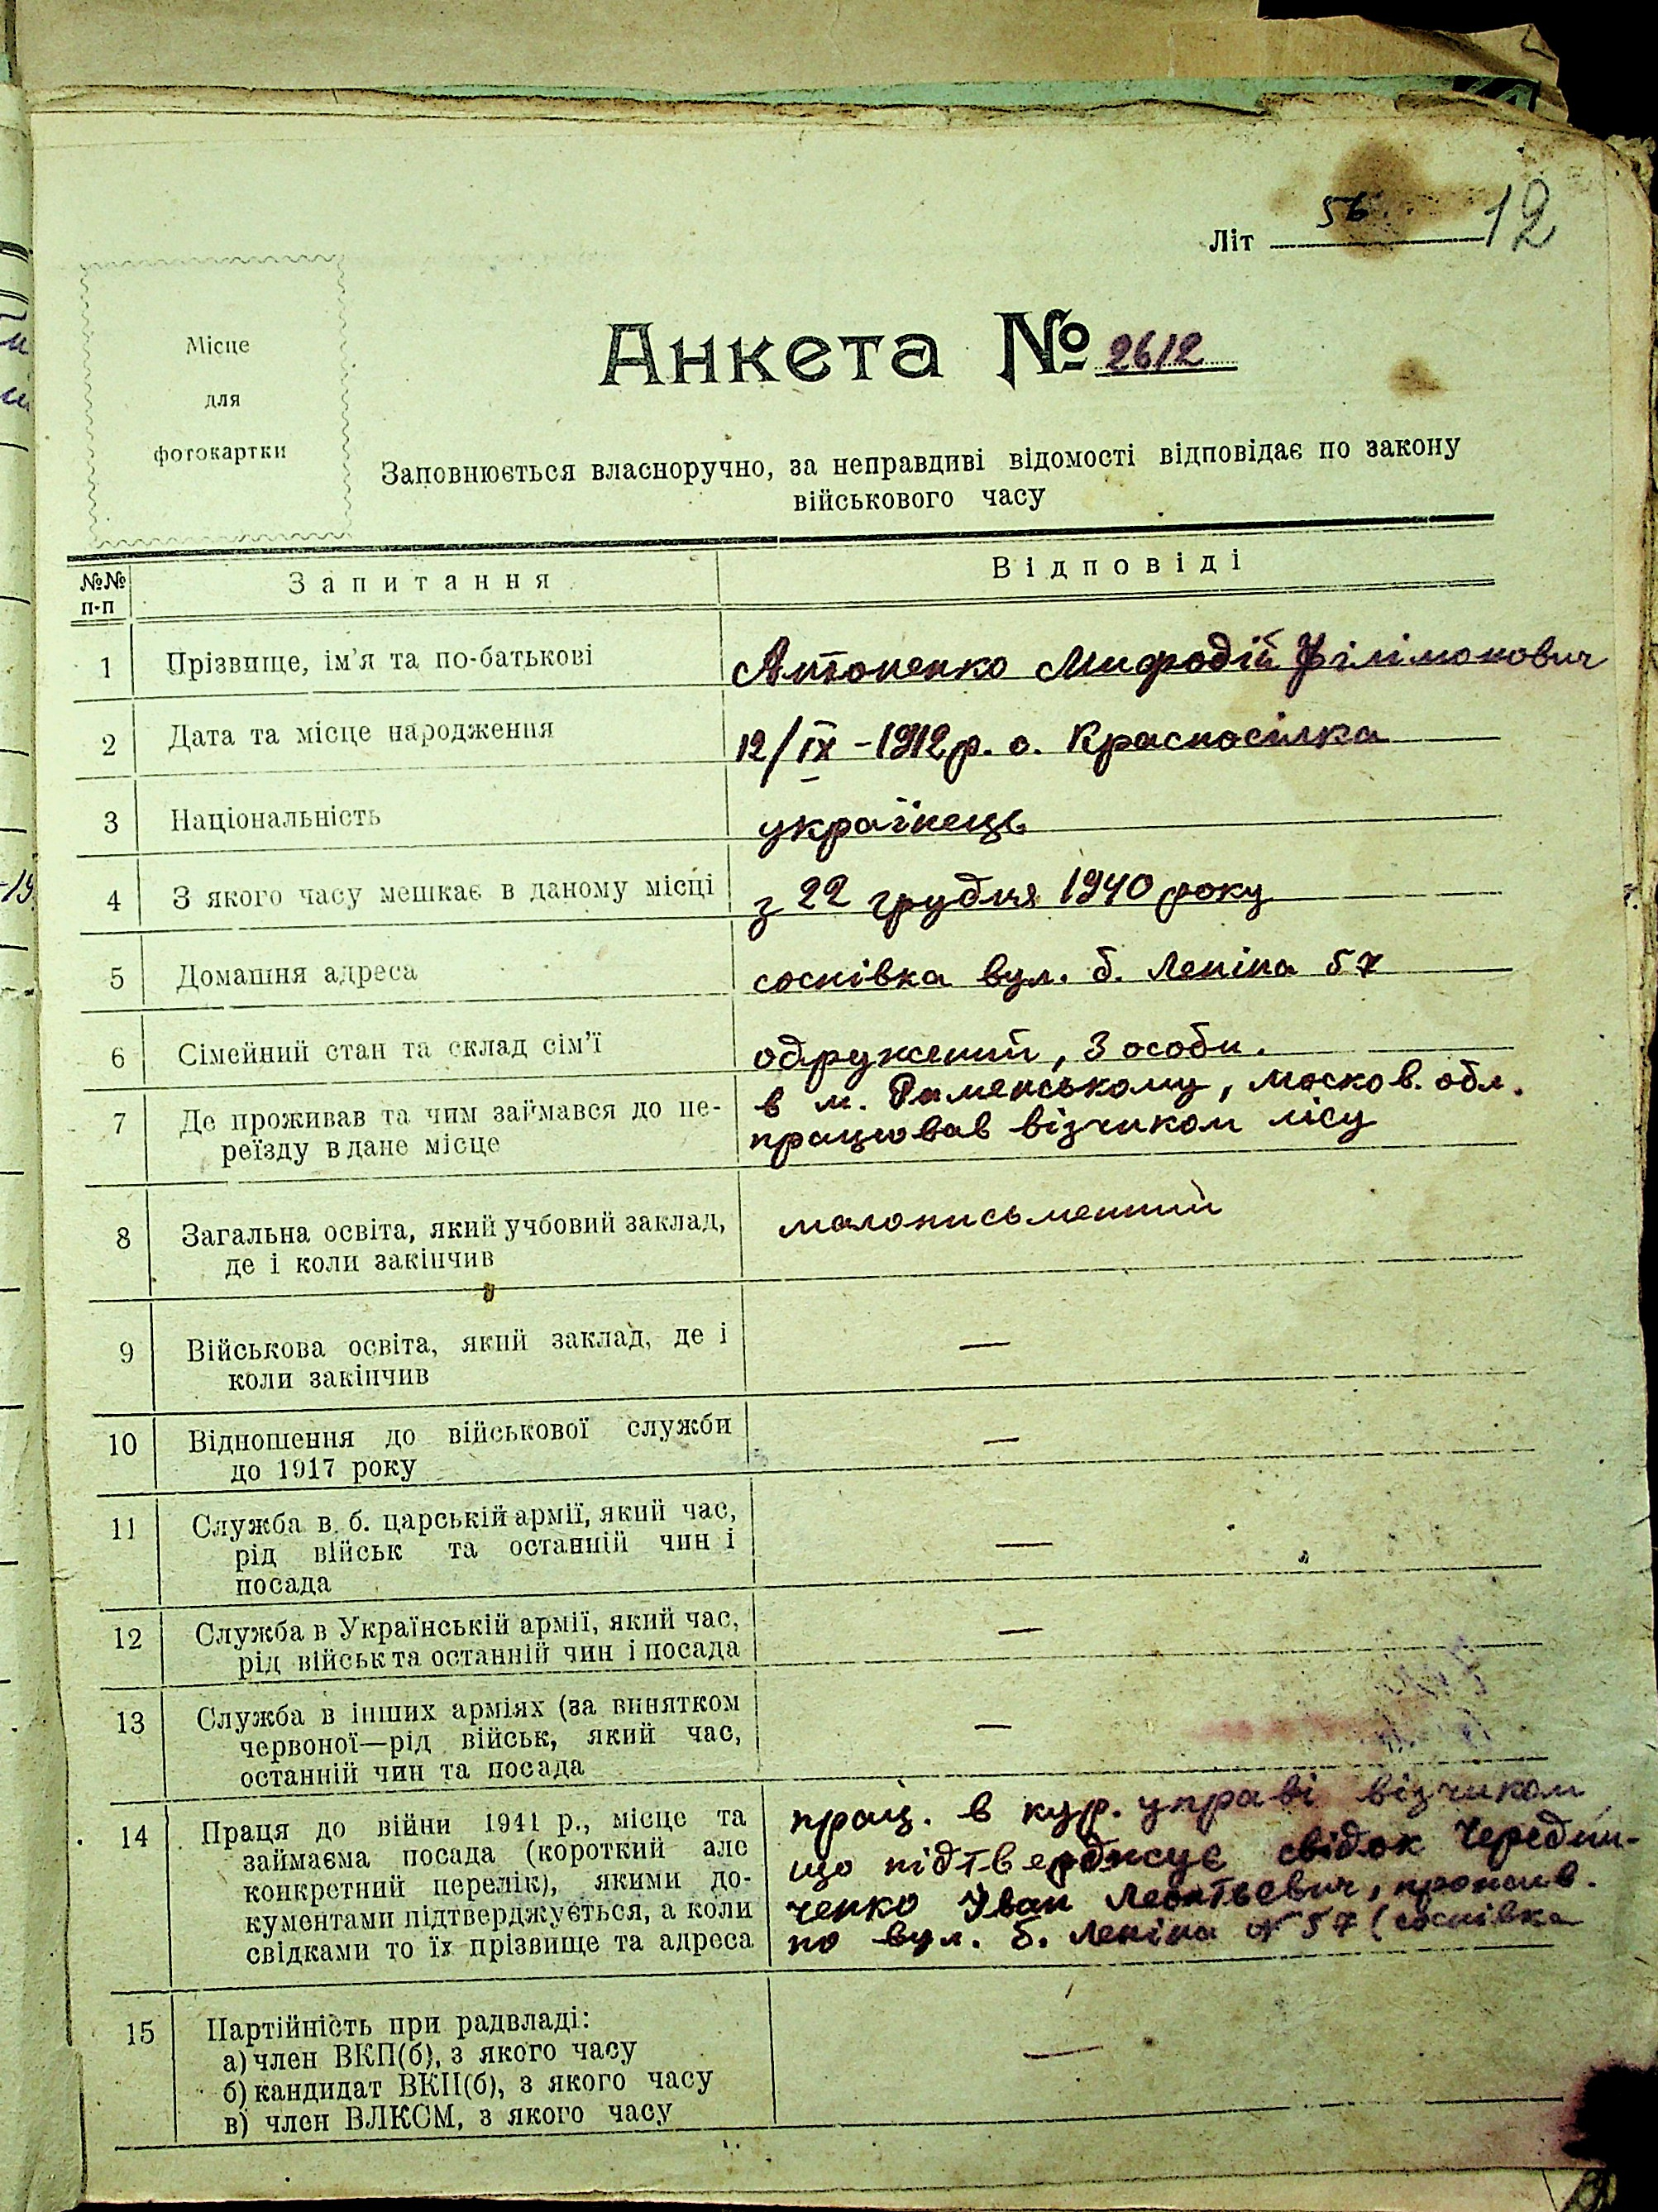 Літ 56. 12
Місце
для
фотокартки
Анкета № 2612
Заповнюється власноручно, за неправдиві відомості відповідає по закону
військового часу
№№ п-п Запитання Відповіді
1 Прізвище, ім'я та по-батькові Антоненко Мифодій Філімонович
2 Дата та місце народження 12/IX – 1912 р. с. Красносілка
3 Національність українець
4 З якого часу мешкає в даному місці з 22 грудня 1940 року
5 Домашня адреса соснівка вул. б. Леніна 57
6 Сімейний стан та склад сім'ї одружений, 3 особи.
7 Де проживав та чим займався до пе- в м. Раменському, москов. обл.
реїзду в дане місце працював візчиком лісу
8 Загальна освіта, який учбовий заклад, малописьменний
де і коли закінчив
9 Військова освіта, який заклад, де і —
коли закінчив
10 Відношення до військової служби —
до 1917 року
11 Служба в б. царській армії, який час,
рід військ та останній чин і —
посада
12 Служба в Українській армії, який час, —
рід військ та останній чин і посада
13 Служба в інших арміях (за винятком —
червоної—рід військ, який час,
останній чин та посада
14 Праця до війни 1941 р., місце та прац. в кур. управі візчиком
займаєма посада (короткий але що підтверджує свідок Чередни-
конкретний перелік), якими до- ченко Іван Леонтьевич, прожив.
кументами підтверджується, а коли по вул. б. Леніна № 57 (соснівка
свідками то їх прізвище та адреса
15 Партійність при радвладі:
а) член ВКП(б), з якого часу —
б) кандидат ВКП(б), з якого часу
в) член ВЛКСМ, з якого часу